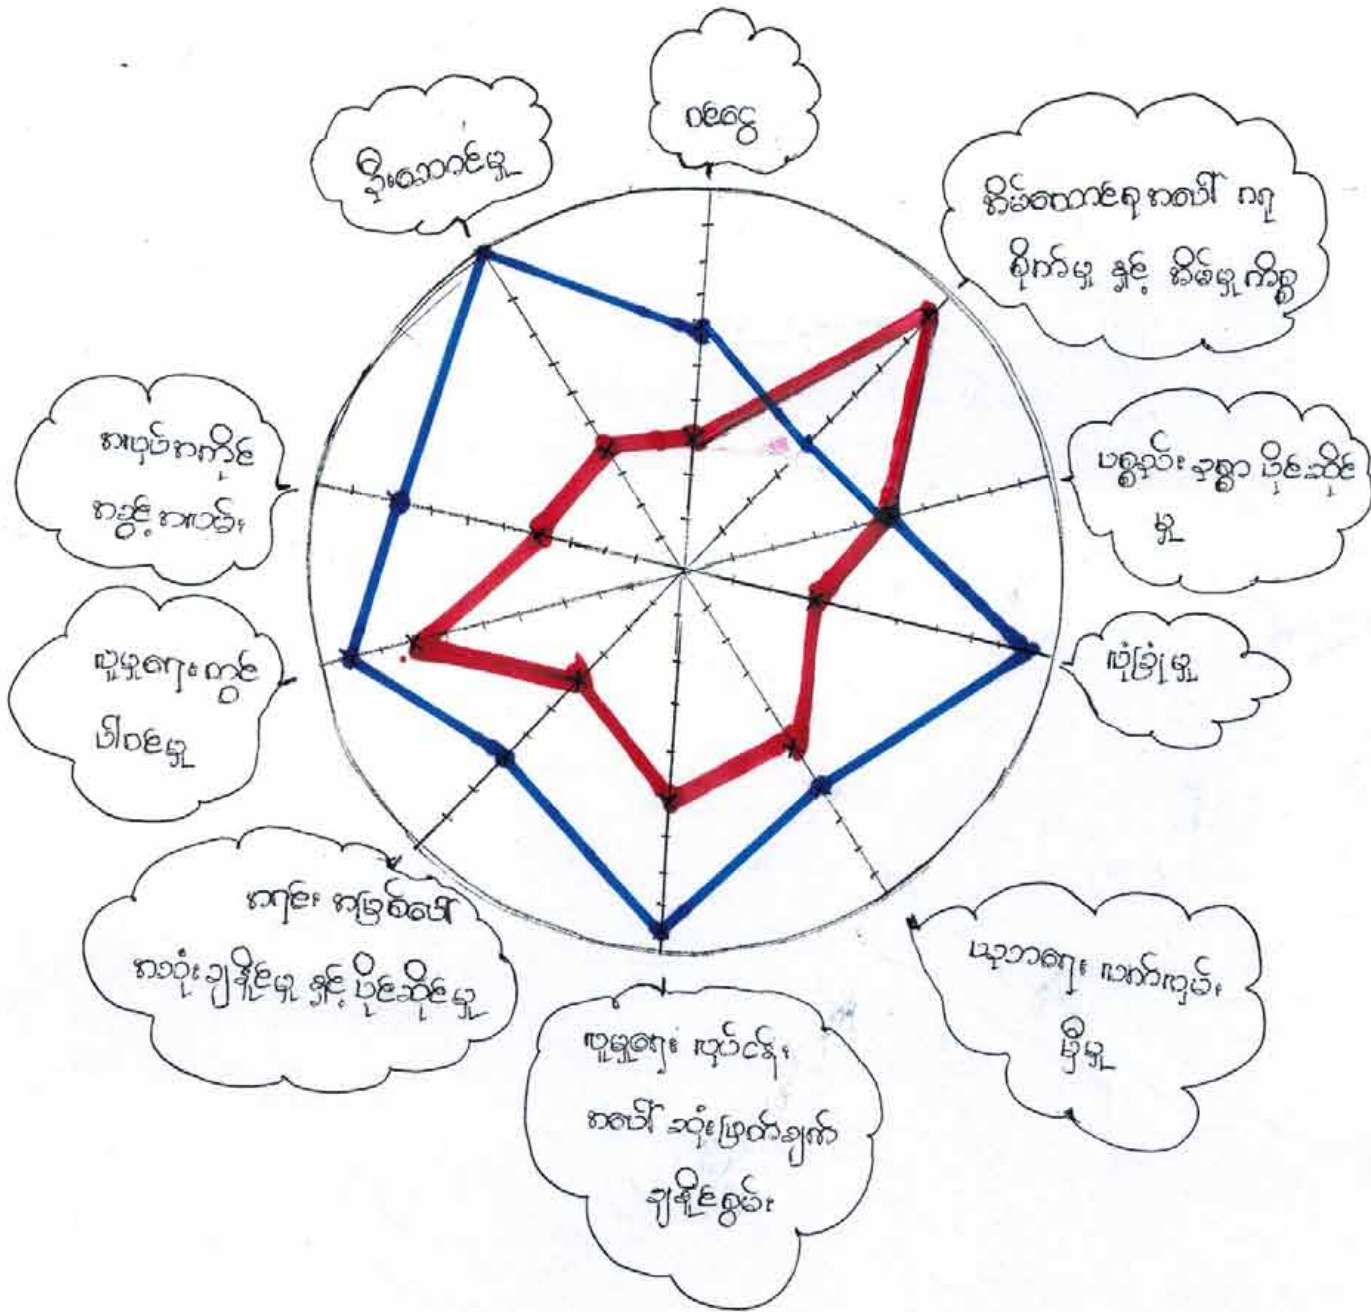 ဝင်ငွေ
အိမ်ထောင်စုအပေါ် ဂရု
စိုက်မှု နှင့် အိမ်မှုကိစ္စ
ပစ္စည်း ဥစ္စာ ပိုင်ဆိုင်
မှု
လုံခြုံမှု
ပညာရေး လက်လှမ်း
မှီမှု
လူမှုရေး လုပ်ငန်း
အပေါ် ဆုံးဖြတ်ချက်
ချနိုင်စွမ်း
အရင်း အမြစ်ပေါ်
အသုံးချနိုင်မှု နှင့် ပိုင်ဆိုင်မှု
လူမှုရေး ကွင်
ပါဝင်မှု
အလုပ်အကိုင်
အခွင့်အလမ်း
ဦးဆောင်မှု